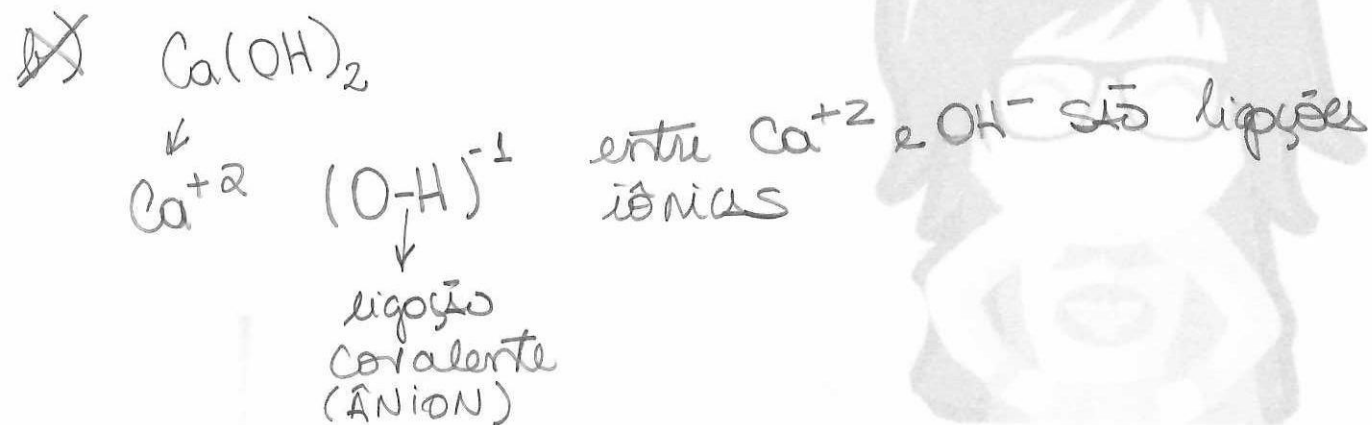 b) Ca(OH)₂
Ca⁺² (O-H)⁻¹ entre Ca⁺² e OH⁻ SÃO ligações
iôNicas
ligação
covalente
(ÂNiON)